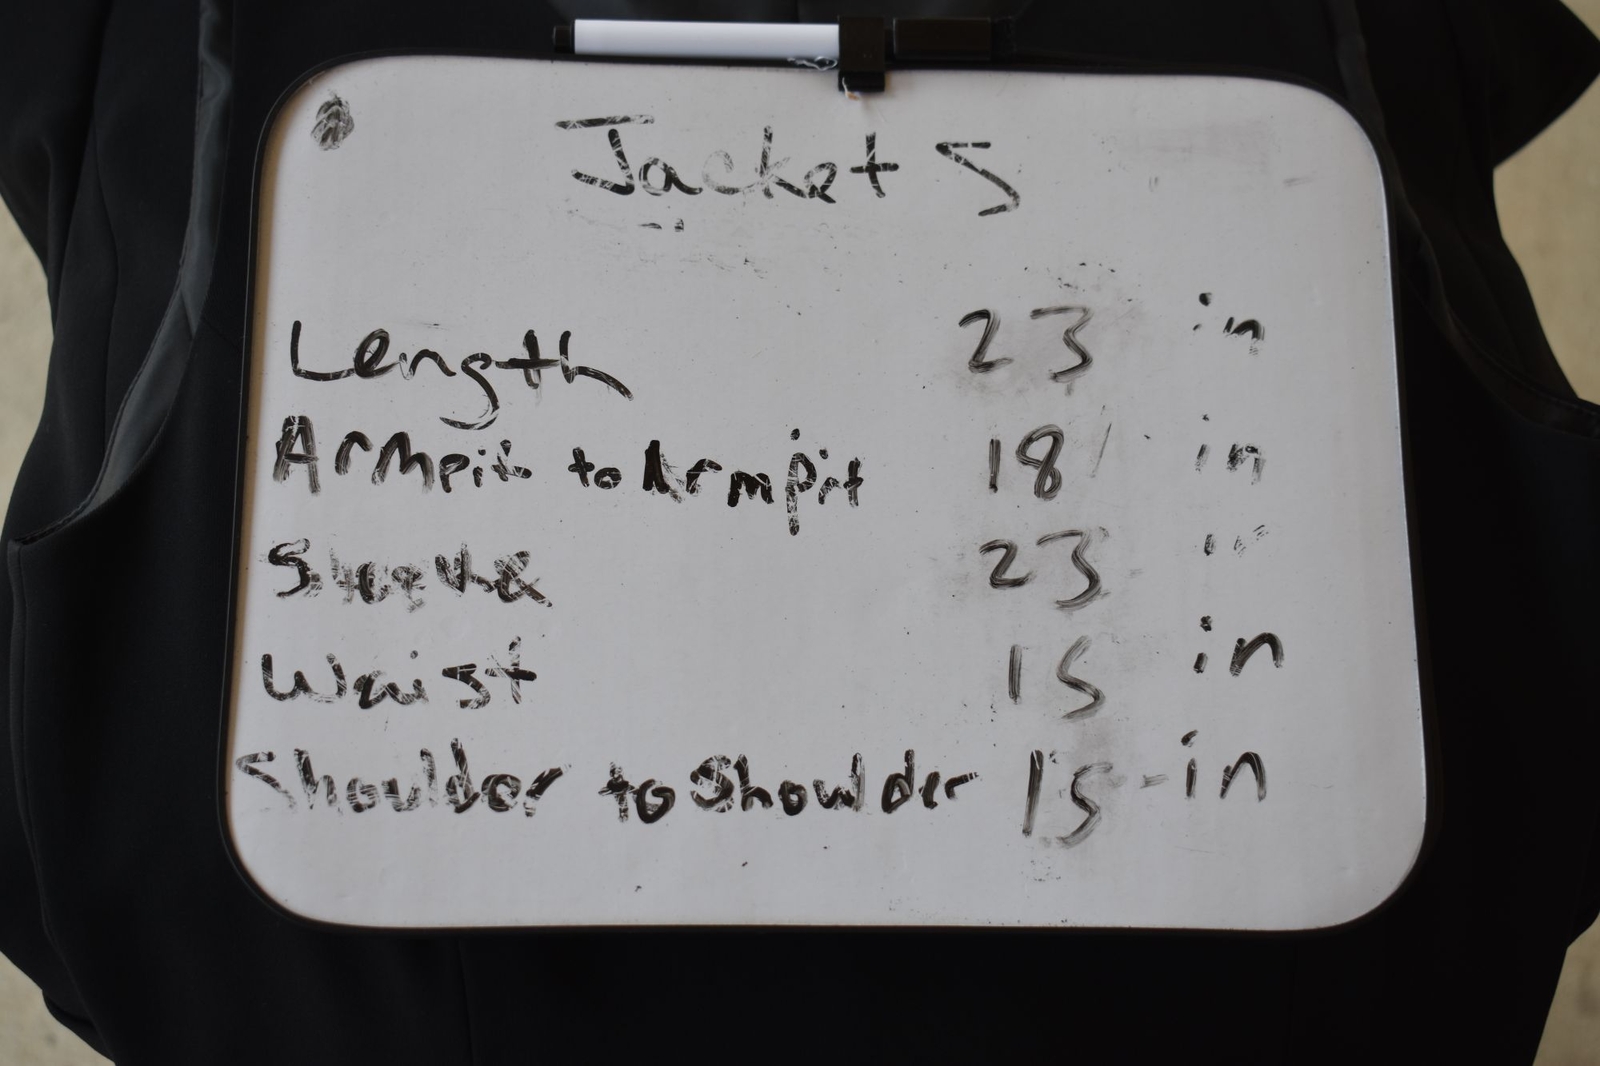 Jacket S
Length 23 in
Armpit to Armpit 18 in
Sleeve 23 in
Waist 15 in
Shoulder to Shoulder 15 - in